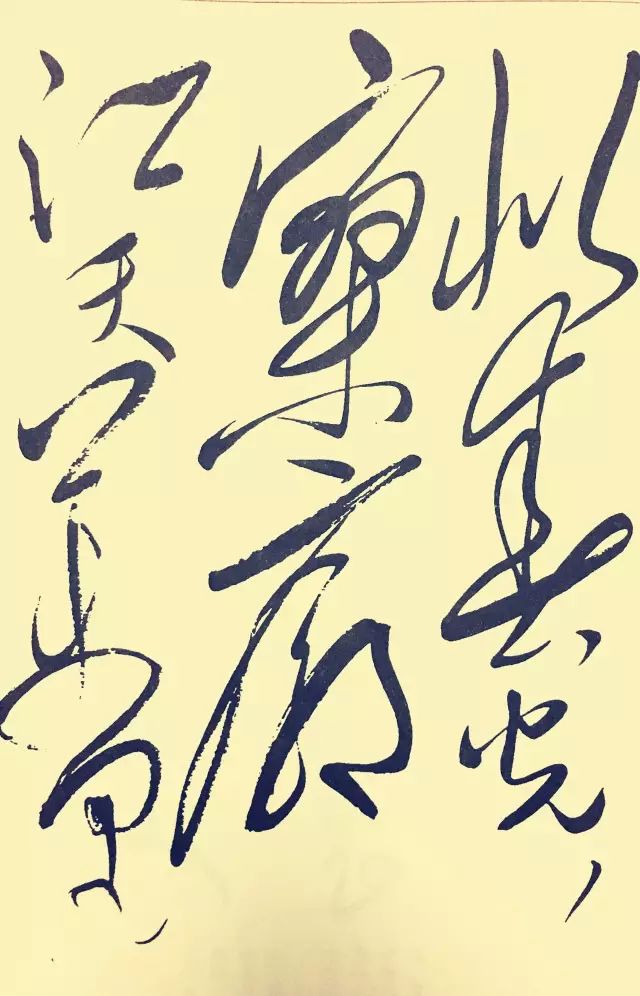 似春光，
寥廓
江天万里